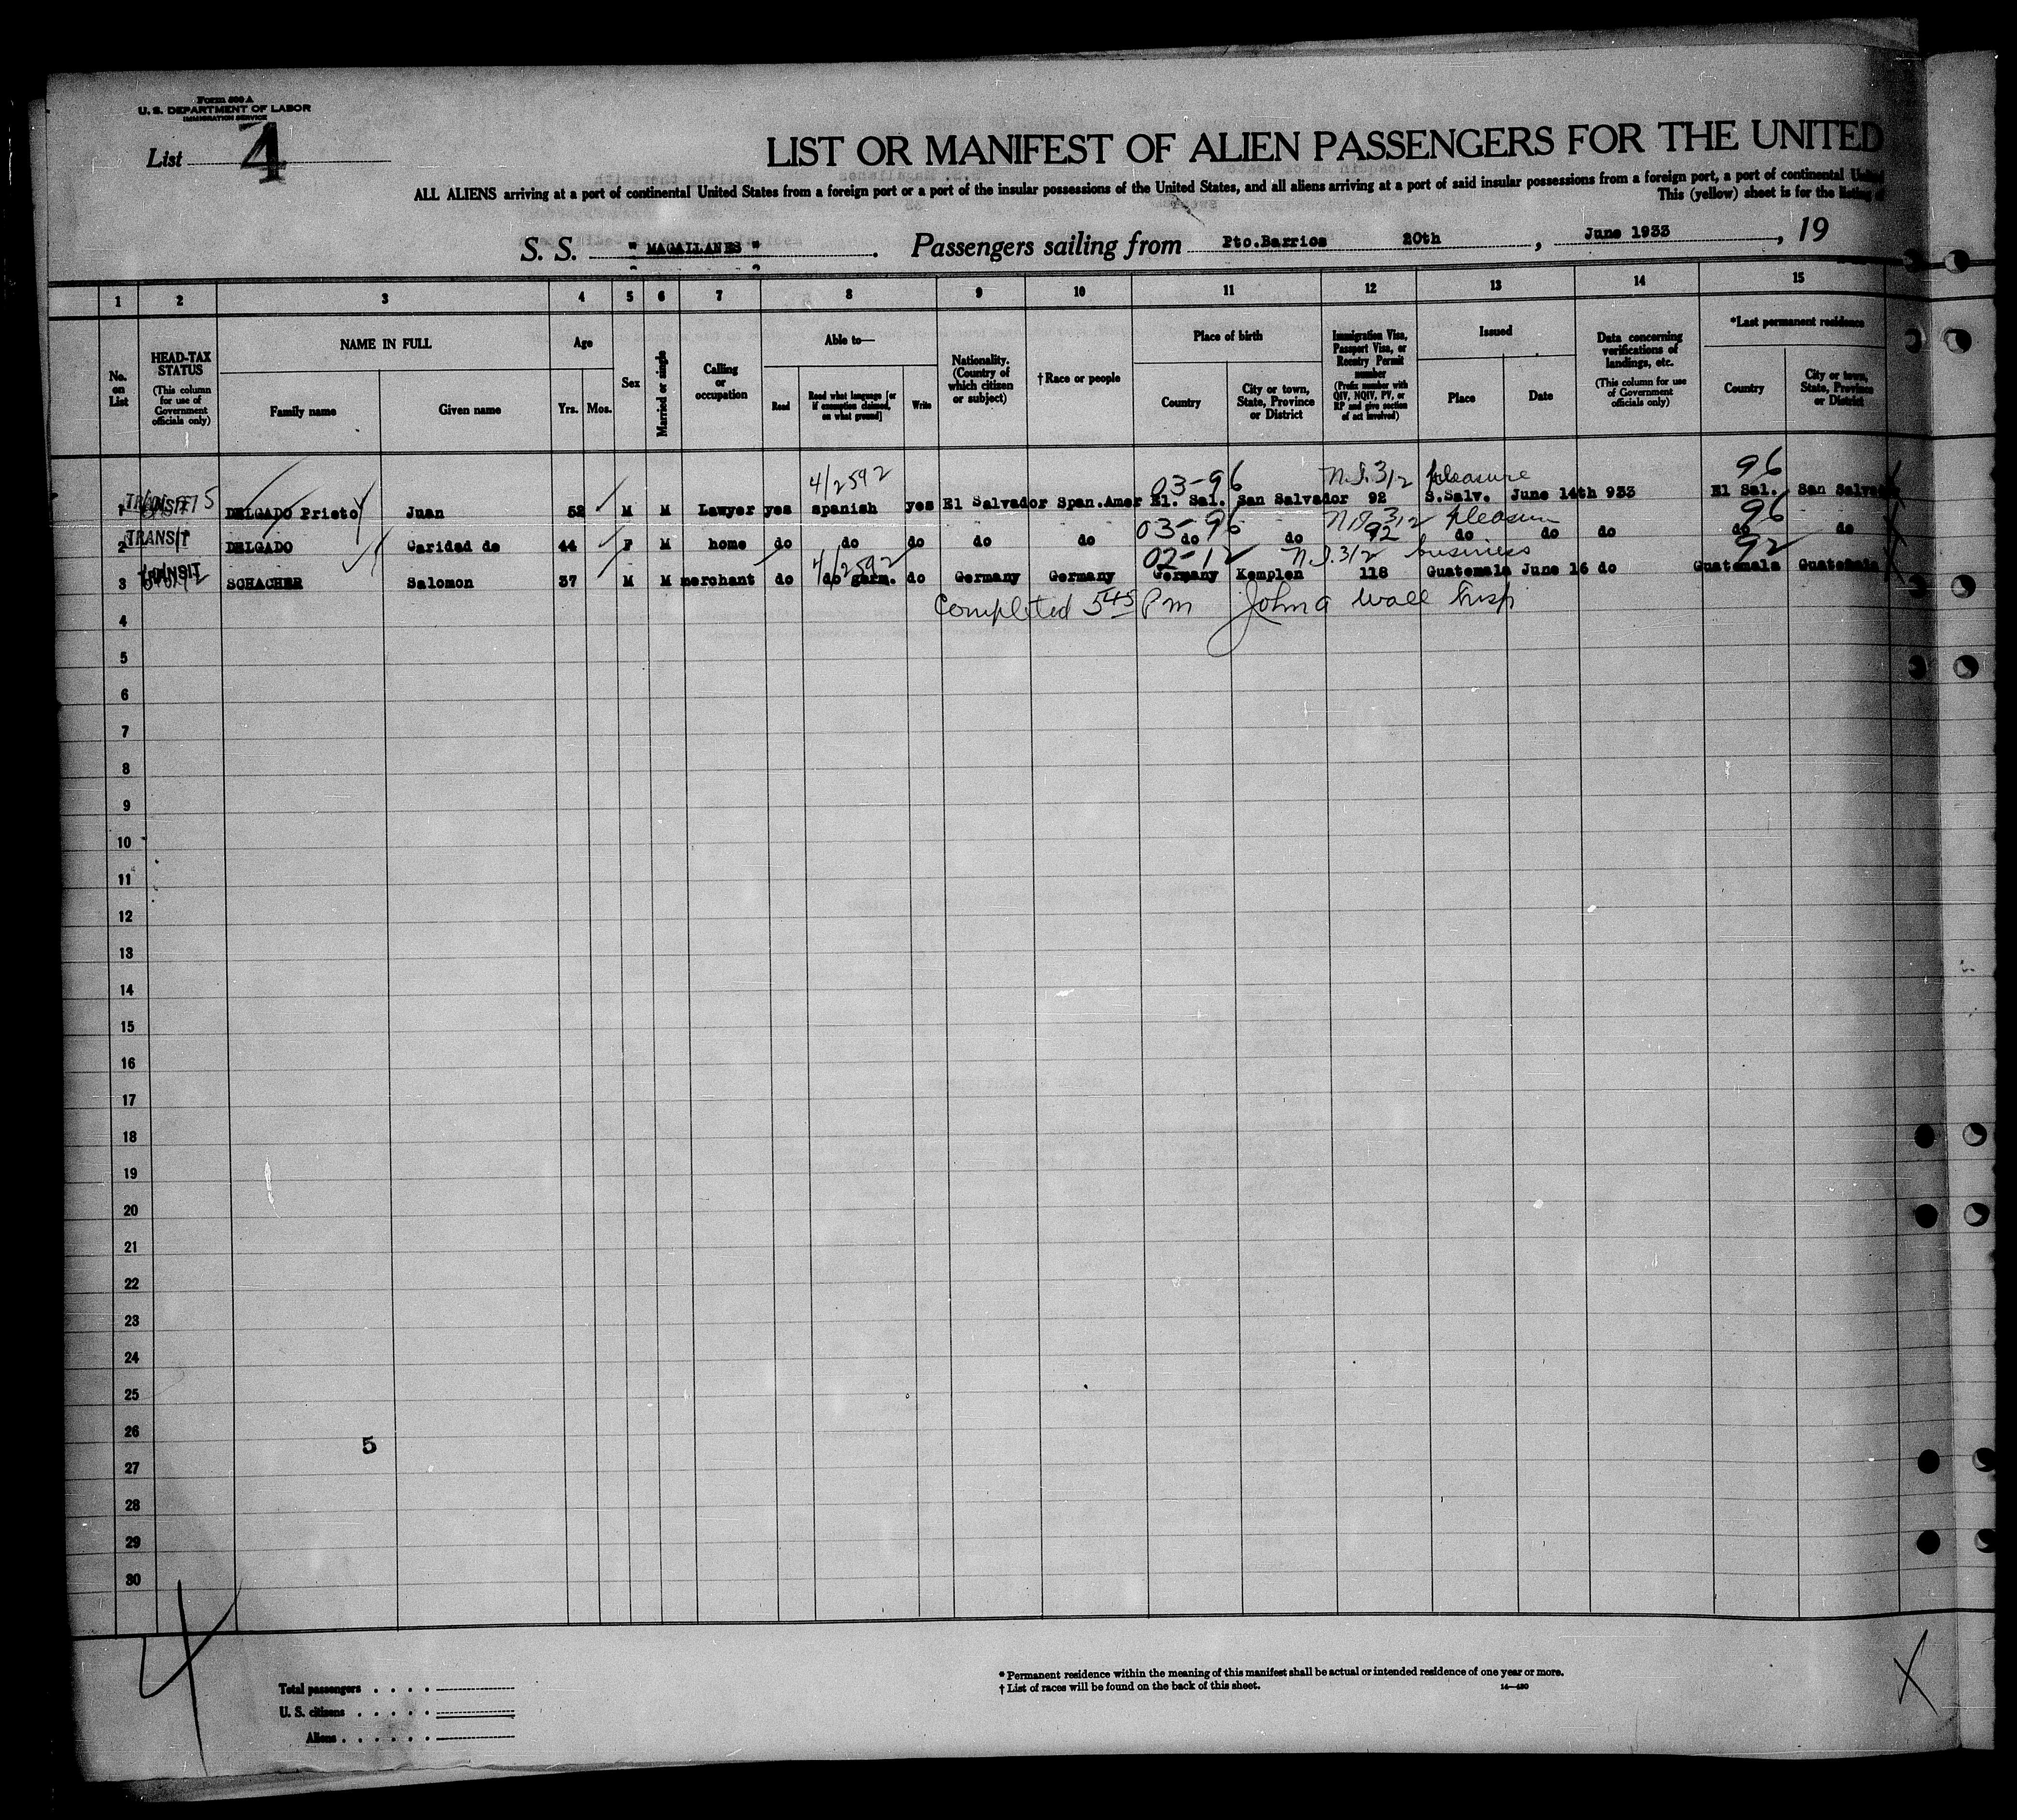 Form 500 A
U. S. DEPARTMENT OF LABOR
IMMIGRATION SERVICE
List 4
LIST OR MANIFEST OF ALIEN PASSENGERS FOR THE UNITED
ALL ALIENS arriving at a port of continental United States from a foreign port or a port of the insular possessions of the United States, and all aliens arriving at a port of said insular possessions from a foreign port, a port of continental United
This (yellow) sheet is for the listing of
S. S. " MAGALLANES " . Passengers sailing from Pto.Barrios 20th , June 1933 , 19
1 2 3 4 5 6 7 8 9 10 11 12 13 14 15
No. on List
HEAD-TAX STATUS
(This column for use of Government officials only)
NAME IN FULL
Family name
Given name
Age
Yrs. Mos.
Sex
Married or single
Calling or occupation
Able to—
Read
Read what language [or if exemption claimed, on what ground]
Write
Nationality. (Country of which citizen or subject)
† Race or people
Place of birth
Country
City or town, State, Province or District
Immigration Visa, Passport Visa, or Reentry Permit number
(Prefix number with QIV, NQIV, PV, or RP and give section of act involved)
Issued
Place
Date
Data concerning verifications of landings, etc.
(This column for use of Government officials only)
*Last permanent residence
Country
City or town, State, Province or District
4/2592 03-96 N.I. 3/2 pleasure 96
1 TRANSIT DELGADO Prieto Juan 52 M M Lawyer yes spanish yes El Salvador Span.Amer El. Sal. San Salvador 92 S.Salv. June 14th 933 El Sal. San Salvador
03-96 N.I. 3/2 pleasure 96
2 TRANSIT DELGADO Caridad de 44 F M home do do do do do do do 92 do do do do do
4/2592 02-12 N.I. 3/2 business 92
3 TRANSIT SCHACHER Salomon 37 M M merchant do do garm. do Germany Germany Germany Kemplen 118 Guatemala June 16 do Guatemala Guatemala
4 Completed 5 45 Pm John a Wall Insp
5
6
7
8
9
10
11
12
13
14
15
16
17
18
19
20
21
22
23
24
25
26
5
27
28
29
30
4
X
Total passengers . . . .
U. S. citizens . . . . .
Aliens . . . . . .
* Permanent residence within the meaning of this manifest shall be actual or intended residence of one year or more.
† List of races will be found on the back of this sheet.
14—430